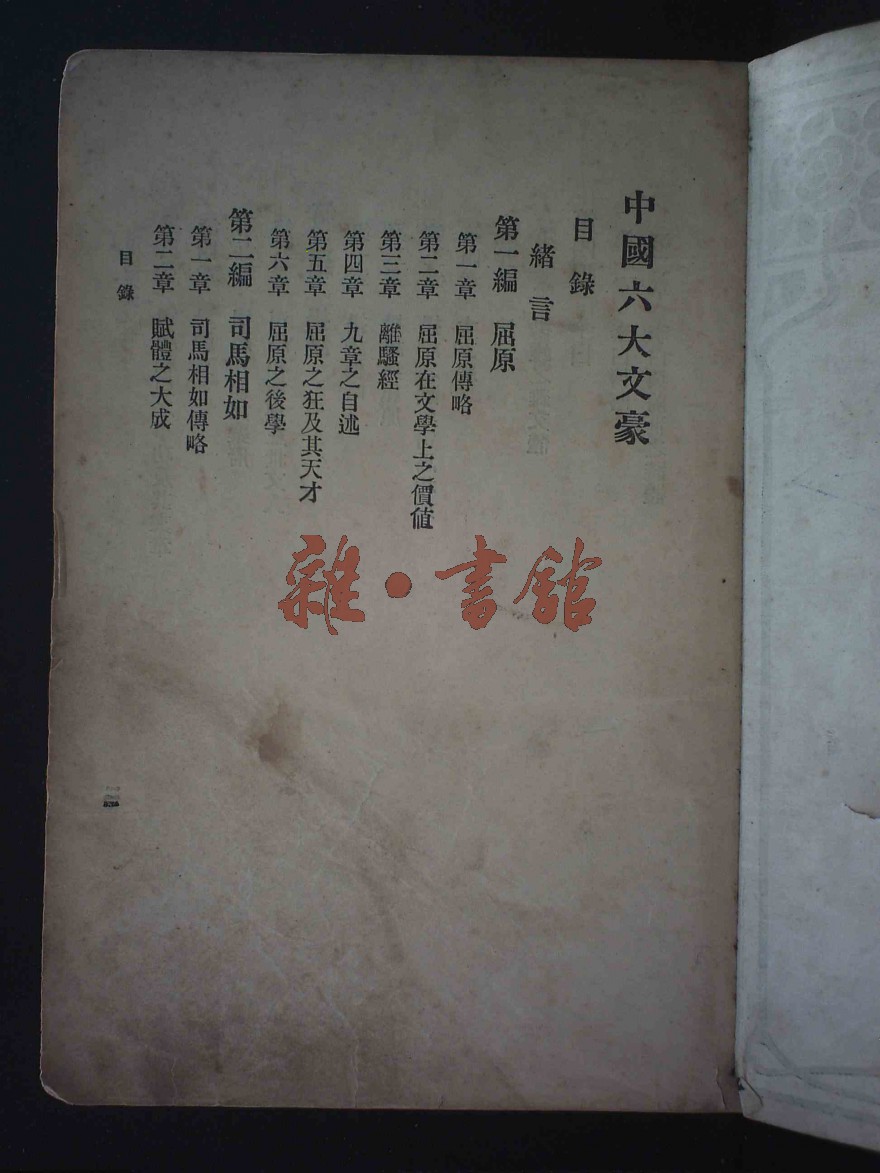 中國六大文豪
目錄
緒言
第一編 屈原
第一章 屈原傳略
第二章 屈原在文學上之價值
第三章 離騷經
第四章 九章之自述
第五章 屈原之狂及其天才
第六章 屈原之後學
第二編 司馬相如
第一章 司馬相如傳略
第二章 賦體之大成
目錄
雜·書館